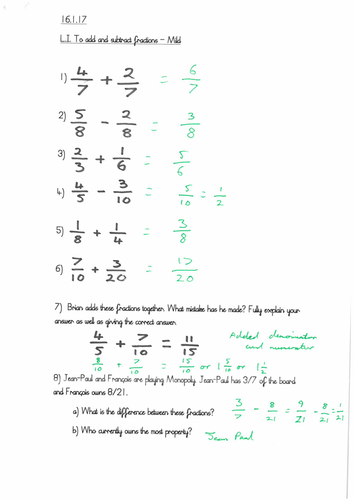 16.1.17
L.I. To add and subtract fractions – Mild
1) 4/7 + 2/7 = 6/7
2) 5/8 - 2/8 = 3/8
3) 2/3 + 1/6 = 5/6
4) 4/5 - 3/10 = 5/10 = 1/2
5) 1/8 + 1/4 = 3/8
6) 7/10 + 3/20 = 17/20
7) Brian adds these fractions together. What mistake has he made? Fully explain your
answer as well as giving the correct answer.
4/5 + 7/10 = 11/15 Added denominator
and numerator
8/10 + 7/10 = 15/10 or 1 5/10 or 1 1/2
8) Jean-Paul and François are playing Monopoly. Jean-Paul has 3/7 of the board
and François owns 8/21.
a) What is the difference between these fractions? 3/7 - 8/21 = 9/21 - 8/21 = 1/21
b) Who currently owns the most property? Jean Paul